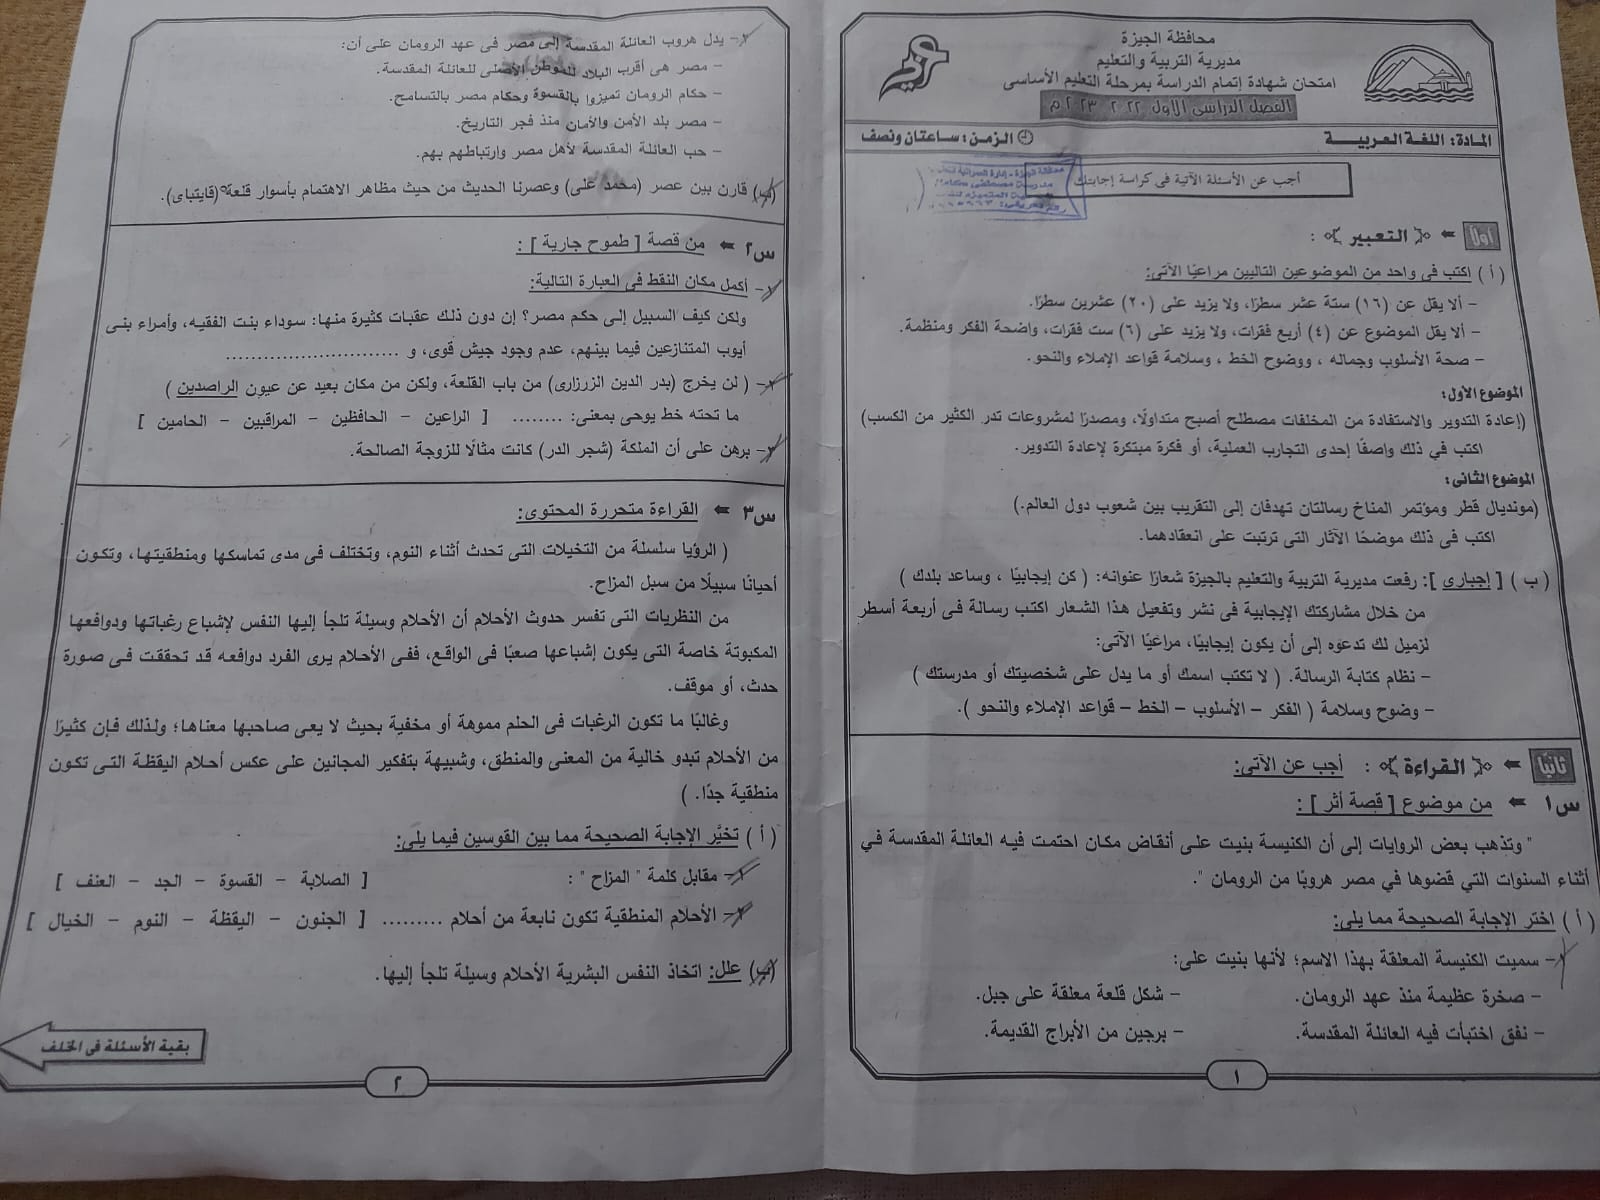 محافظة الجيزة
مديرية التربية والتعليم
امتحان شهادة إتمام الدراسة بمرحلة التعليم الأساسى
الفصل الدراسى الأول ٢٠٢٢ ٢٠٢٣م
المادة: اللغة العربية
الزمن: ساعتان ونصف
أجب عن الأسئلة الآتية فى كراسة إجابتك
أولاً التعبير :
( أ ) اكتب فى واحد من الموضوعين التاليين مراعيًا الآتى:
- ألا يقل عن (١٦) ستة عشر سطرًا، ولا يزيد على (٢٠) عشرين سطرًا.
- ألا يقل الموضوع عن (٤) أربع فقرات، ولا يزيد على (٦) ست فقرات، واضحة الفكر ومنظمة.
- صحة الأسلوب وجماله ، ووضوح الخط ، وسلامة قواعد الإملاء والنحو.
الموضوع الأول:
(إعادة التدوير والاستفادة من المخلفات مصطلح أصبح متداولًا، ومصدرًا لمشروعات تدر الكثير من الكسب)
اكتب في ذلك واصفًا إحدى التجارب العملية، أو فكرة مبتكرة لإعادة التدوير.
الموضوع الثانى:
(مونديال قطر ومؤتمر المناخ رسالتان تهدفان إلى التقريب بين شعوب دول العالم.)
اكتب فى ذلك موضحًا الآثار التى ترتبت على انعقادهما.
( ب ) [ إجبارى ]: رفعت مديرية التربية والتعليم بالجيزة شعارًا عنوانه: ( كن إيجابيًا ، وساعد بلدك )
من خلال مشاركتك الإيجابية فى نشر وتفعيل هذا الشعار اكتب رسالة فى أربعة أسطر
لزميل لك تدعوه إلى أن يكون إيجابيًا، مراعيًا الآتى:
- نظام كتابة الرسالة. ( لا تكتب اسمك أو ما يدل على شخصيتك أو مدرستك )
- وضوح وسلامة ( الفكر - الأسلوب - الخط - قواعد الإملاء والنحو ).
ثانيًا القراءة : أجب عن الآتى:
س١ من موضوع [ قصة أثر ] :
" وتذهب بعض الروايات إلى أن الكنيسة بنيت على أنقاض مكان احتمت فيه العائلة المقدسة في
أثناء السنوات التي قضوها في مصر هروبًا من الرومان ".
( أ ) اختر الإجابة الصحيحة مما يلى:
١- سميت الكنيسة المعلقة بهذا الاسم؛ لأنها بنيت على:
- صخرة عظيمة منذ عهد الرومان. - شكل قلعة معلقة على جبل.
- نفق اختبأت فيه العائلة المقدسة. - برجين من الأبراج القديمة.
١
٢- يدل هروب العائلة المقدسة إلى مصر فى عهد الرومان على أن:
- مصر هى أقرب البلاد للموطن الأصلى للعائلة المقدسة.
- حكام الرومان تميزوا بالقسوة وحكام مصر بالتسامح.
- مصر بلد الأمن والأمان منذ فجر التاريخ.
- حب العائلة المقدسة لأهل مصر وارتباطهم بهم.
(ب) قارن بين عصر (محمد على) وعصرنا الحديث من حيث مظاهر الاهتمام بأسوار قلعة (قايتباى).
س٢ من قصة [ طموح جارية ] :
١- أكمل مكان النقط فى العبارة التالية:
ولكن كيف السبيل إلى حكم مصر؟ إن دون ذلك عقبات كثيرة منها: سوداء بنت الفقيه، وأمراء بنى
أيوب المتنازعين فيما بينهم، عدم وجود جيش قوى، و ............................
٢- ( لن يخرج (بدر الدين الزرزارى) من باب القلعة، ولكن من مكان بعيد عن عيون الراصدين )
ما تحته خط يوحى بمعنى: ........ [ الراعين - الحافظين - المراقبين - الحامين ]
٣- برهن على أن الملكة (شجر الدر) كانت مثالًا للزوجة الصالحة.
س٣ القراءة متحررة المحتوى:
( الرؤيا سلسلة من التخيلات التى تحدث أثناء النوم، وتختلف فى مدى تماسكها ومنطقيتها، وتكون
أحيانًا سبيلًا من سبل المزاح.
من النظريات التى تفسر حدوث الأحلام أن الأحلام وسيلة تلجأ إليها النفس لإشباع رغباتها ودوافعها
المكبوتة خاصة التى يكون إشباعها صعبًا فى الواقع، ففى الأحلام يرى الفرد دوافعه قد تحققت فى صورة
حدث، أو موقف.
وغالبًا ما تكون الرغبات فى الحلم مموهة أو مخفية بحيث لا يعى صاحبها معناها؛ ولذلك فإن كثيرًا
من الأحلام تبدو خالية من المعنى والمنطق، وشبيهة بتفكير المجانين على عكس أحلام اليقظة التى تكون
منطقية جدًا. )
( أ ) تخيَّر الإجابة الصحيحة مما بين القوسين فيما يلى:
١- مقابل كلمة " المزاح " : [ الصلابة - القسوة - الجد - العنف ]
٢- الأحلام المنطقية تكون نابعة من أحلام ......... [ الجنون - اليقظة - النوم - الخيال ]
(ب) علل: اتخاذ النفس البشرية الأحلام وسيلة تلجأ إليها.
بقية الأسئلة فى الخلف
٢